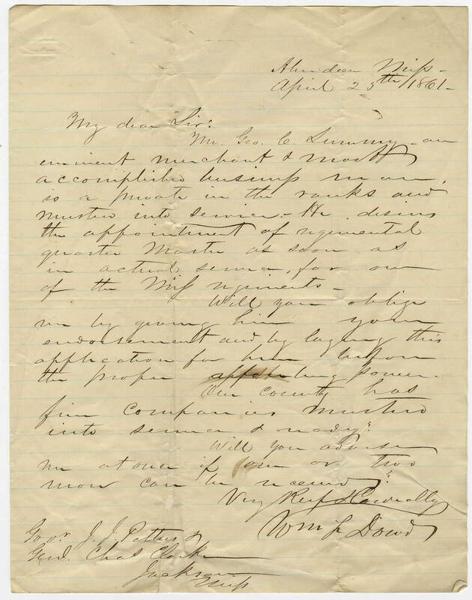 Aberdeen Miss -
April 25th / 1861 -
My dear Sir:
Mr. Geo. C. - an
eminent merchant & most
accomplished business man,
is a private in the ranks and
mustered into service - He desires
the appointment of regimental
quarter Master as soon as
in actual service, for one
of the Miss regiments -
Will you oblige
me by giving him your
endorsement and by laying this
application for him before
the proper appointing power.
Our county has
five companies mustered
into service & ready:
Will you advise
me at once if one or two
more can be received?
Very Respectfully
Wm F Dowd
Govr. J. J. Pettus or
Genl. Chas Clark
Jackson
Miss